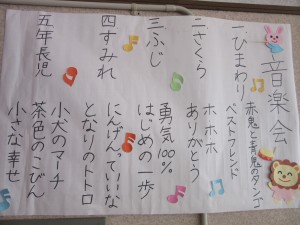 音楽会
一ひまわり
赤鬼と青鬼のタンゴ
ベストフレンド
二さくら
ホホホ
ありがとう
三ふじ
勇気100%
はじめの一歩
四すみれ
にんげんっていいな
となりのトトロ
五年長児
小犬のマーチ
茶色のこびん
小さな幸せ